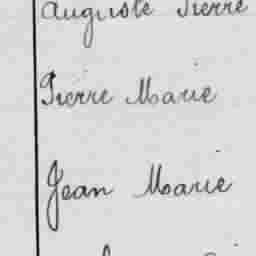 Auguste Pierre
Pierre Marie
Jean Marie